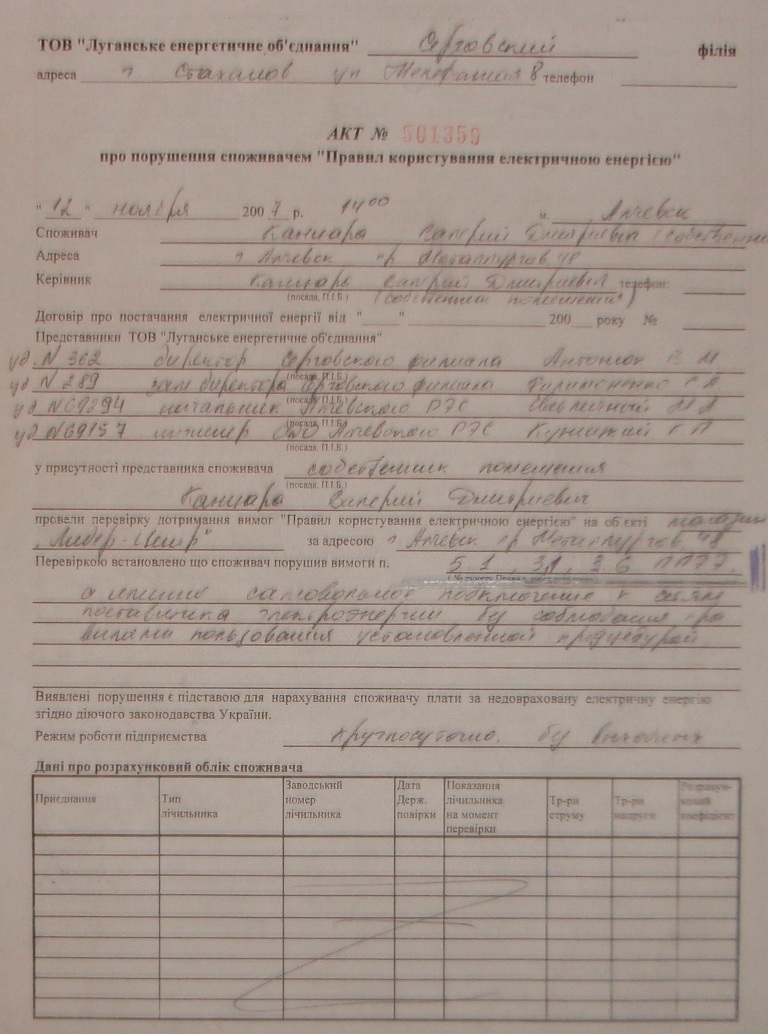 ТОВ "Луганське енергетичне об'єднання" філія
адреса г Стаханов ул 8 телефон
АКТ № 501359
про порушення споживачем "Правил користування електричною енергією"
"12" ноября 2007 р. 14 00 м. Алчевск
Споживач Канцара Валерий Дмитриевич
Адреса г Алчевск пр Металлургов 48
Керівник Канцара Валерий Дмитриевич телефон:
(посада, П.І.Б.) (собственник помещения)
Договір про постачання електричної енергії від " " 200 року №
Представники ТОВ "Луганське енергетичне об'єднання"
уд. N 362 директор филиала Антонюк В М
(посада, П.І.Б.)
уд N 289 зам директора филиала
(посада, П.І.Б.)
уд N 69394 начальник Алчевского РЭС
(посада, П.І.Б.)
уд N 69157 инженер Алчевского РЭС
(посада, П.І.Б.)
у присутності представника споживача собственник помещения
(посада, П.І.Б.)
Канцара Валерий Дмитриевич
провели перевірку дотримання вимог "Правил користування електричною енергією" на об'єкті магазин
"Лидер-Центр" за адресою г Алчевск пр Металлургов 48
Перевіркою встановлено що споживач порушив вимоги п. 5.1, 3.1, 3.6 ППЭЭ
а именно самовольное подключение к сетям
поставщика электроэнергии без соблюдения пра
вилами пользования установленной процедурой
Виявлені порушення є підставою для нарахування споживачу плати за недовраховану електричну енергію
згідно діючого законодавства України.
Режим роботи підприємства круглосуточно. без выходных
Дані про розрахунковий облік споживача
Приєднання Тип лічильника Заводський номер лічильника Дата Держ. повірки Показання лічильника на момент перевірки Тр-ри струму Тр-ри напруги